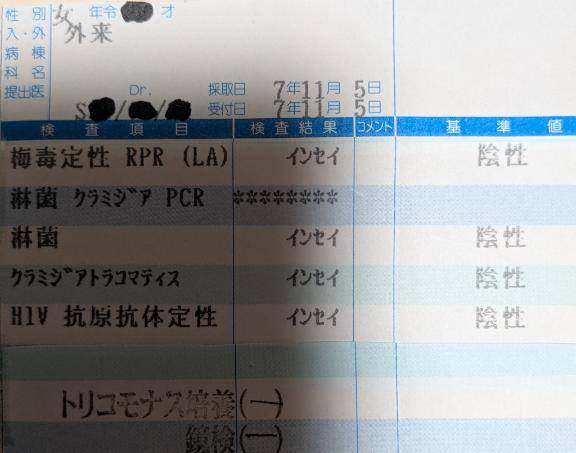 性別 女 年令 才
入・外 外来
病棟
科名
提出医 Dr. 採取日 7年11月 5日
S / / 受付日 7年11月 5日
検査項目 検査結果 コメント 基準値
梅毒定性 RPR (LA) インセイ 陰性
淋菌 クラミジア PCR ********
淋菌 インセイ 陰性
クラミジアトラコマティス インセイ 陰性
HIV 抗原抗体定性 インセイ 陰性
トリコモナス培養(一)
鏡検(一)